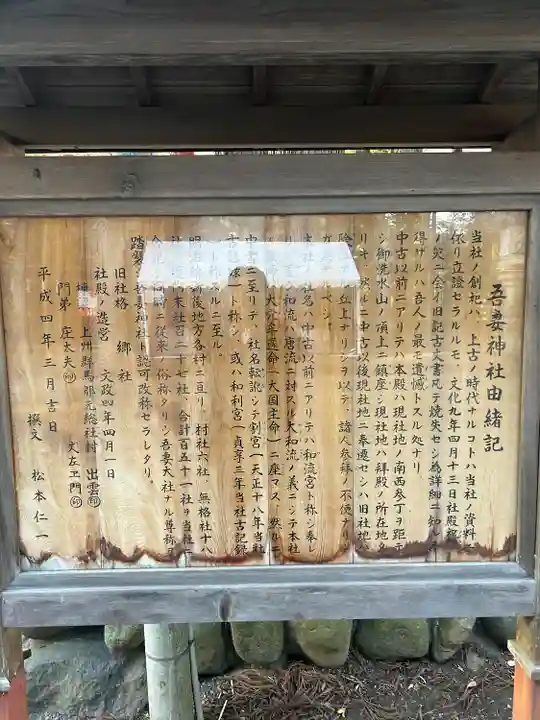 吾妻神社由緒記
当社ノ創祀ハ、上古ノ時代ナルコトハ当社ノ資料ニ
依リ立證セラルルモ、文化九年四月十三日社殿祝
ノ災ニ会イ旧記古文書凡テ焼失セシ為詳細ニ知ル
得ザルハ吾人ノ最モ遺憾トスル処ナリ
中古以前ニアリテハ本殿ハ現社地ノ南西参丁ヲ距モ
シ御洗水山ノ頂上ニ鎮座シ現社地ハ拝殿ノ所在地タ
リキ、然ルニ中古以後現社地ニ奉遷セシハ旧社地ハ
丘上ナリシヲ以テ、諸人参拝ノ不便ナリシ
ベシ
社名ハ中古以前ニアリテハ和流宮ト称シ奉レ
和流ハ唐流ニ対スル大和流ノ義ニシテ本社
大穴牟遅命(大国主命)ニ座マス、然ルニ
中古ニ至リテハ、社名転訛シテ割宮(天正十八年当社
ト称シ、或ハ和利宮(貞享三年当社古記録
スルニ至ル。
明治 後地方各村ニ亘リ、村社六社、無格社十八
末社百二十七社、合計百五十一社ヲ当社ニ
従来ノ俗称タリシ吾妻大社ナル尊称ヲ
踏襲シ吾妻神社ト認可改称セラレタリ。
旧社格 郷社
社殿ノ造営 文政四年四月一日
上州群馬郡元総社村 出雲㊞
文左ヱ門㊞
門弟 庄太夫㊞
平成四年三月吉日 撰文 松本仁一